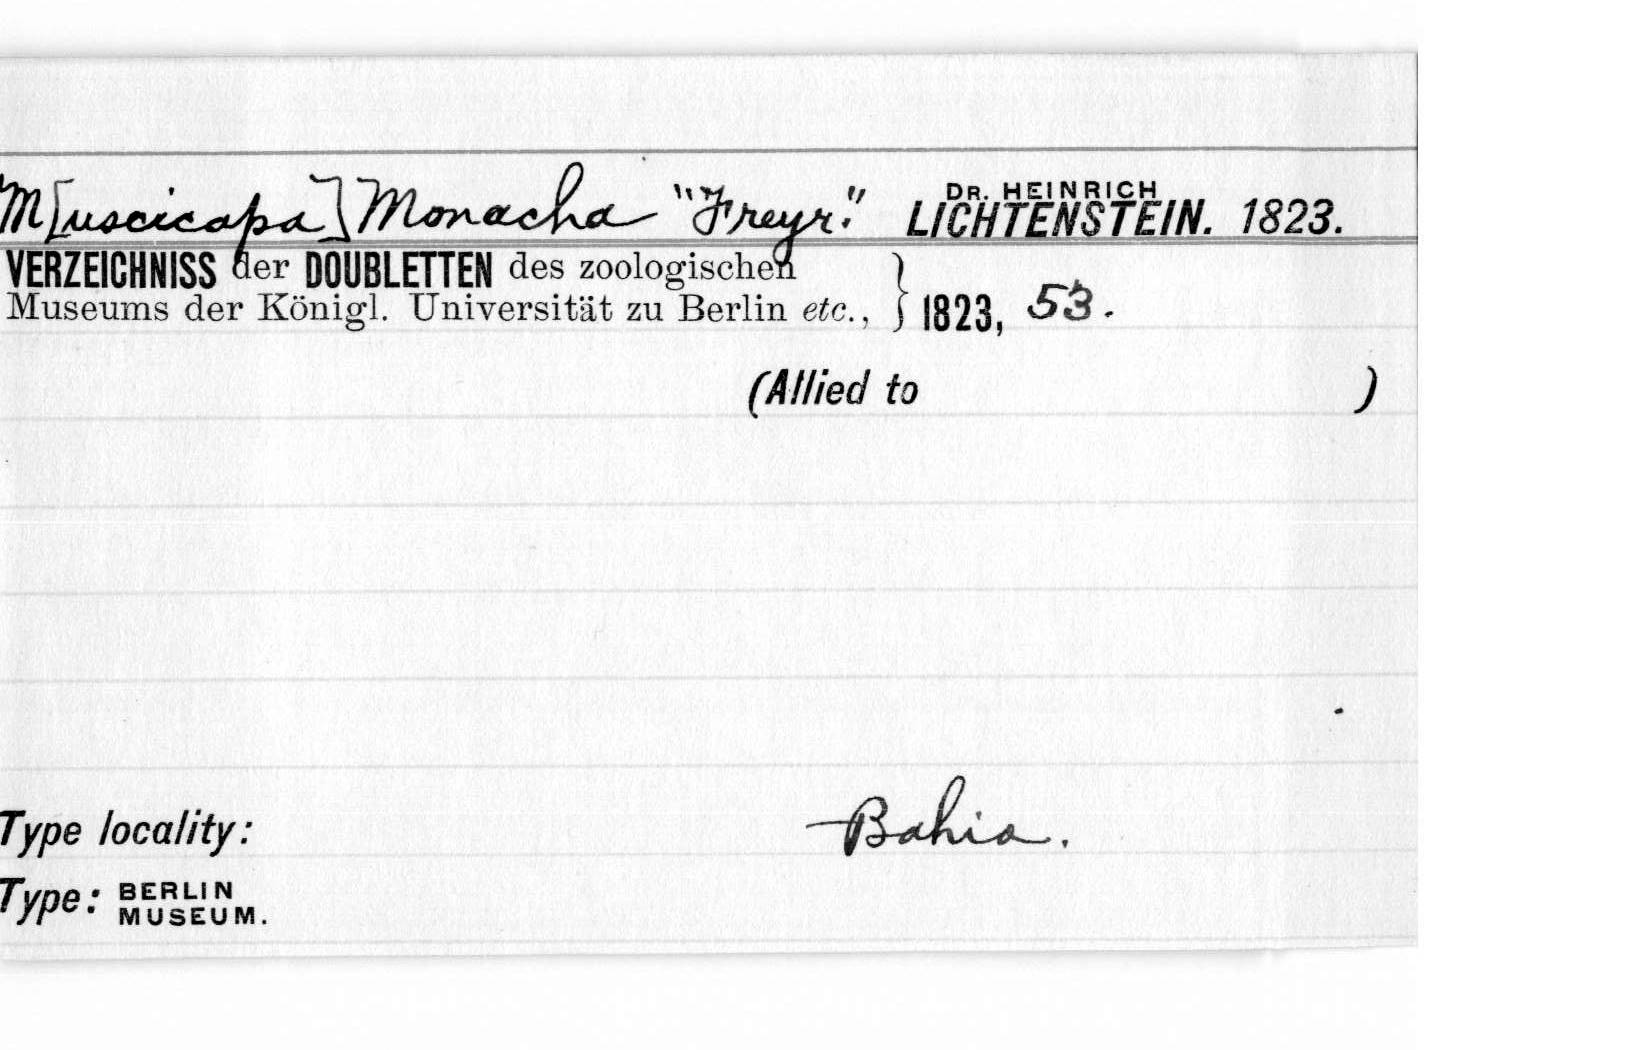 M[uscicapa] Monacha "Freyr." DR. HEINRICH LICHTENSTEIN. 1823.
VERZEICHNISS der DOUBLETTEN des zoologischen
Museums der Königl. Universität zu Berlin etc., } 1823, 53.
(Allied to )
Type locality: Bahia.
Type: BERLIN MUSEUM.